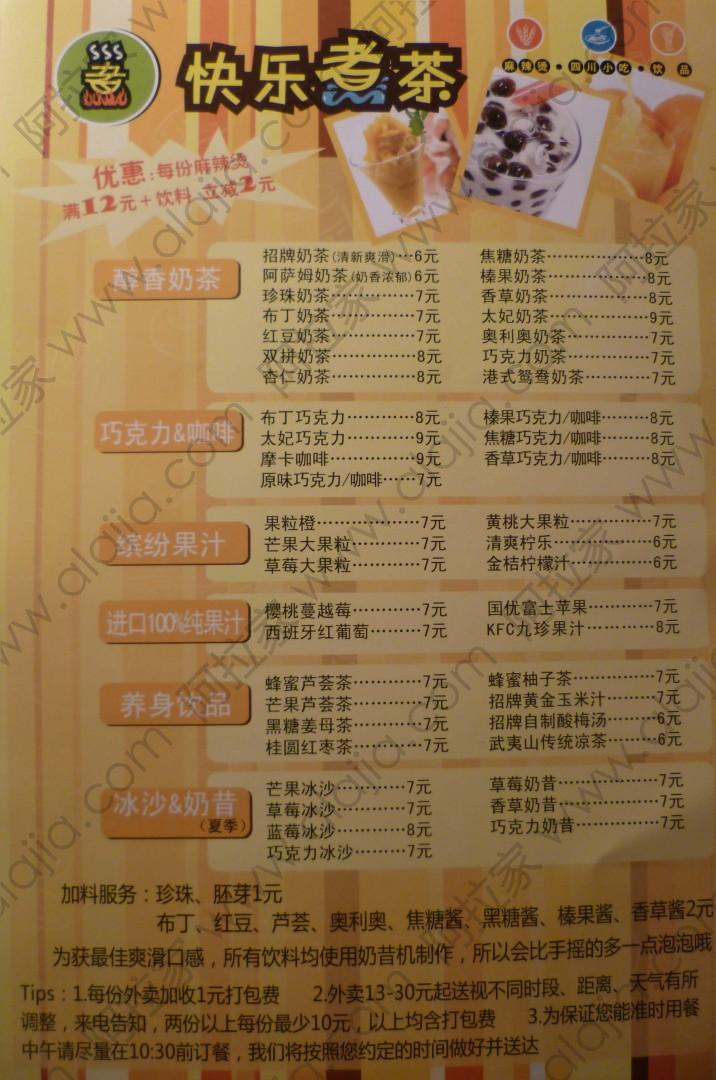 快乐煮茶
麻辣烫·四川小吃·饮品
优惠:每份麻辣烫
满12元+饮料 立减2元
醇香奶茶
招牌奶茶(清新爽滑)…6元 焦糖奶茶…………8元
阿萨姆奶茶(奶香浓郁)6元 榛果奶茶…………8元
珍珠奶茶…………7元 香草奶茶…………8元
布丁奶茶…………7元 太妃奶茶…………9元
红豆奶茶…………7元 奥利奥奶茶…………7元
双拼奶茶…………8元 巧克力奶茶…………7元
杏仁奶茶…………8元 港式鸳鸯奶茶…………7元
巧克力&咖啡
布丁巧克力…………8元 榛果巧克力/咖啡………8元
太妃巧克力…………9元 焦糖巧克力/咖啡………8元
摩卡咖啡…………9元 香草巧克力/咖啡………8元
原味巧克力/咖啡……7元
缤纷果汁
果粒橙…………7元 黄桃大果粒…………7元
芒果大果粒…………7元 清爽柠乐…………6元
草莓大果粒…………7元 金桔柠檬汁…………6元
进口100%纯果汁
樱桃蔓越莓…………7元 国优富士苹果…………7元
西班牙红葡萄………7元 KFC九珍果汁…………8元
养身饮品
蜂蜜芦荟茶…………7元 蜂蜜柚子茶…………7元
芒果芦荟茶…………7元 招牌黄金玉米汁………7元
黑糖姜母茶…………7元 招牌自制酸梅汤………6元
桂圆红枣茶…………7元 武夷山传统凉茶………6元
冰沙&奶昔
(夏季)
芒果冰沙…………7元 草莓奶昔…………7元
草莓冰沙…………7元 香草奶昔…………7元
蓝莓冰沙…………8元 巧克力奶昔…………7元
巧克力冰沙………7元
加料服务：珍珠、胚芽1元
布丁、红豆、芦荟、奥利奥、焦糖酱、黑糖酱、榛果酱、香草酱2元
为获最佳爽滑口感，所有饮料均使用奶昔机制作，所以会比手摇的多一点泡泡哦
Tips：1.每份外卖加收1元打包费 2.外卖13-30元起送视不同时段、距离、天气有所
调整，来电告知，两份以上每份最少10元，以上均含打包费 3.为保证您能准时用餐
中午请尽量在10:30前订餐，我们将按照您约定的时间做好并送达
阿拉家 www.alajia.com